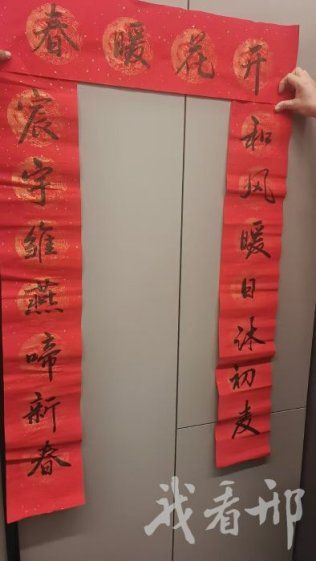 春暖花开
宸宇維燕啼新春
和风暖日沐初麦
我看邢